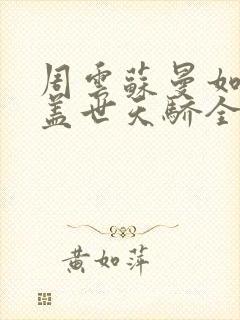 周雲蘇曼如
蓋世天驕全
黄如萍